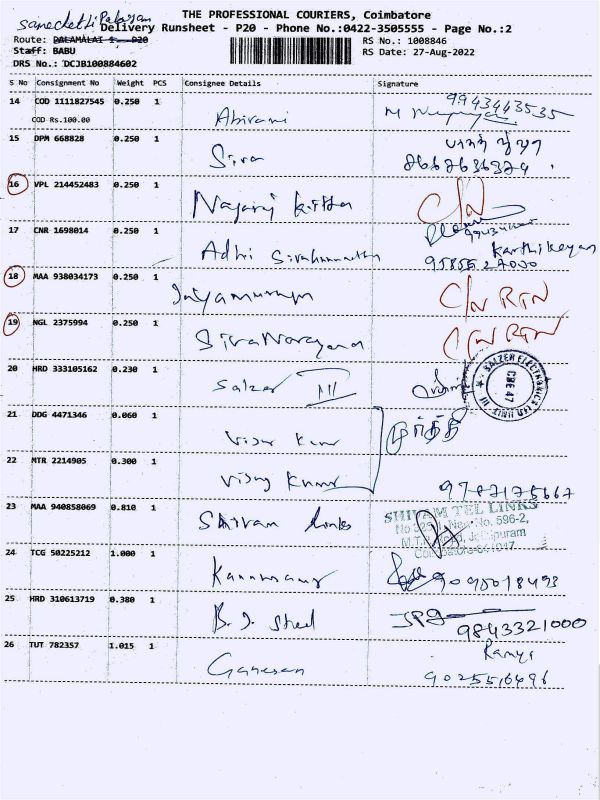 THE PROFESSIONAL COURIERS, Coimbatore
Delivery Runsheet - P20 - Phone No.:0422-3505555 - Page No.:2
Route: DALAMALAI 1 - P20
RS No.: 1008846
Staff: BABU
RS Date: 27-Aug-2022
DRS No.: DCJB100884602
S No Consignment No Weight PCS Consignee Details Signature
14 COD 1111827545 0.250 1 Abirami 9943443535
COD Rs.100.00
15 DPM 668828 0.250 1 Siva
16 VPL 214452483 0.250 1 Nagaraj C/N
17 CNR 1698014 0.250 1 Adhi Karthikeyan
18 MAA 938034173 0.250 1 C/N RTN
19 NGL 2375994 0.250 1 Siva Narayana C/N RTN
20 HRD 333105162 0.230 1 Salzer III
SALZER ELECTRONICS LTD UNIT III
CBE 47
21 DDG 4471346 0.060 1 Vijay Kumar
22 MTR 2214905 0.300 1 Vijay Kumar 9787175667
23 MAA 940858069 0.810 1 Shivam Links
SHIVAM TEL LINKS
No. 596-2,
24 TCG 50225212 1.000 1 9095018493
25 HRD 310613719 0.380 1 B.J. Steel 9843321000
26 TUT 782357 1.015 1 Ganesan Ramya
9025516496